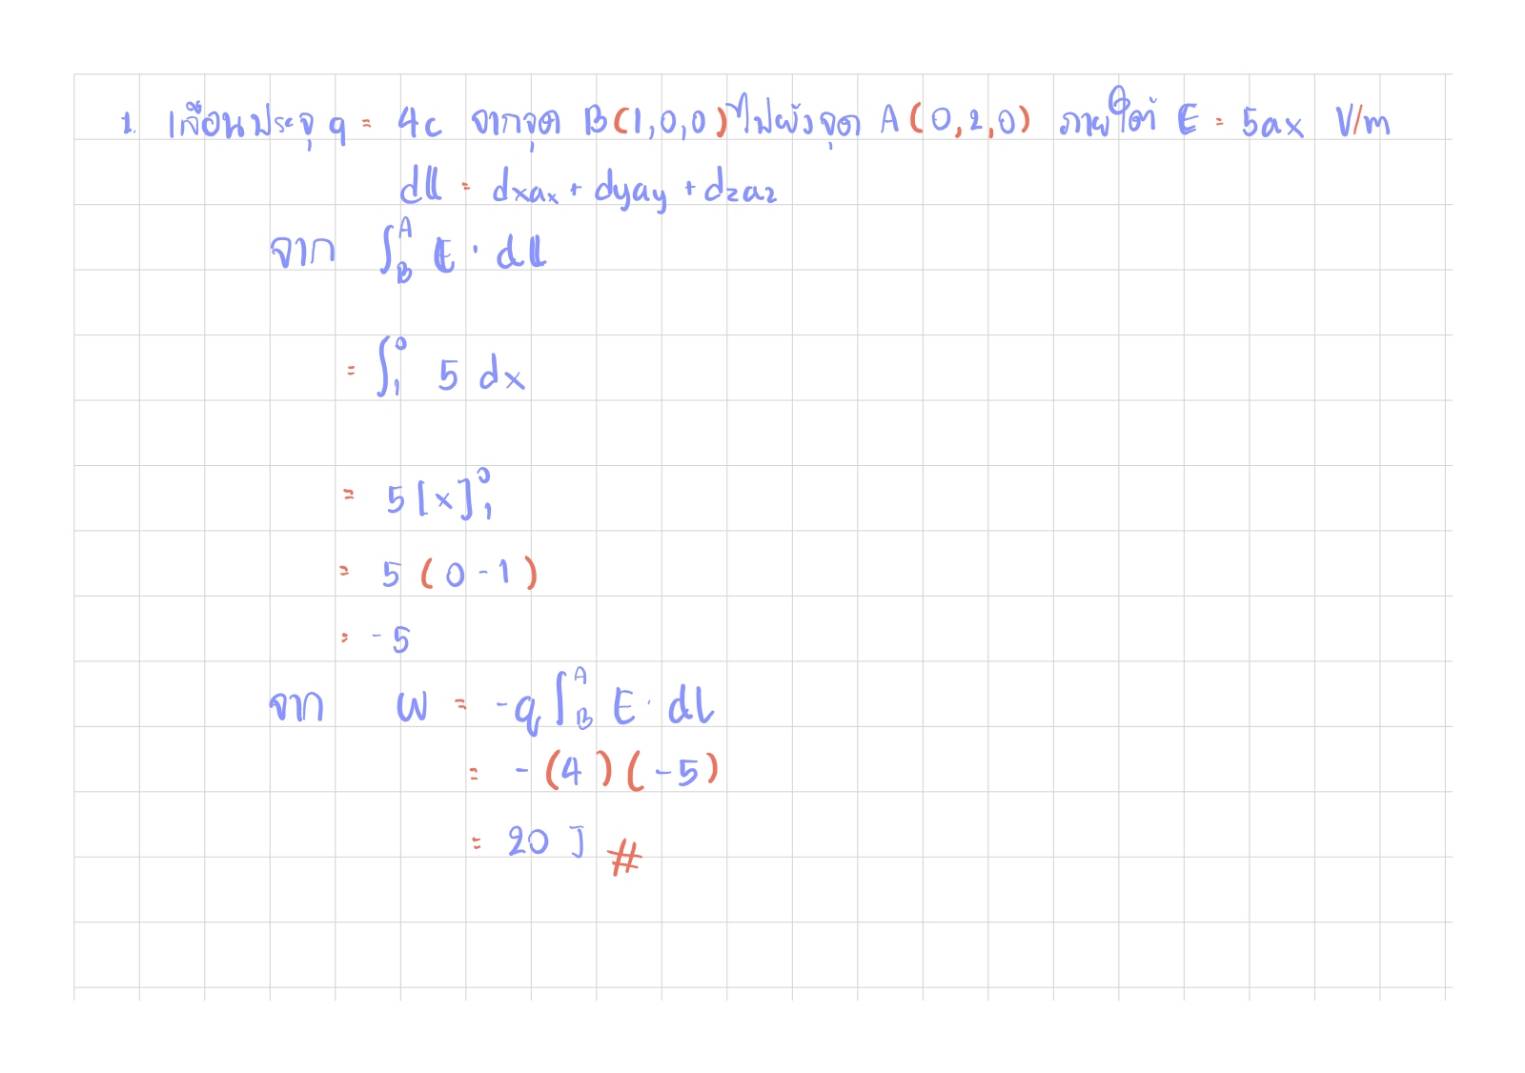 1. เลื่อนประจุ q = 4c จากจุด B(1,0,0) ไปยังจุด A(0,2,0) ภายใต้ E = 5ax V/m
dl = dxax + dyay + dzaz
จาก ∫_B^A E · dl
= ∫_1^0 5 dx
= 5[x]_1^0
= 5(0-1)
= -5
จาก W = -q∫_B^A E · dl
= -(4)(-5)
= 20 J #